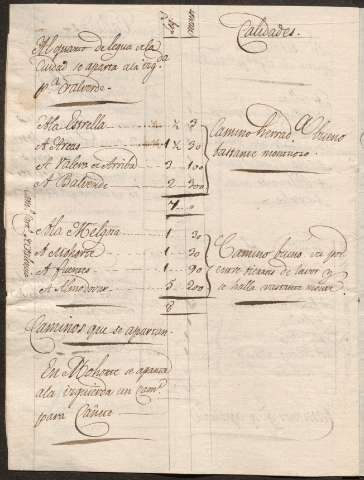 Leg.s
Calidades.
Al quarto de legua a la
Ciudad se aparta a la izq.da
p.a Valverde
A la Estrella ½ 3
A Areas 1 ½ 30
A Valera de Arriba 3 100
A Valverde 2 300
7
Camino herrad.a bueno
bastante montuoso
A la Melgosa 1 30
A Mohorte 1 20
A Fuentes 1 90
A Almodovar 5 200
8
Camino bueno va por
entre tierras de lavor y
a halla vastante
Caminos que se apartan.
En Mohorte se aparta
a la izquierda un Cam.o
para Cañete